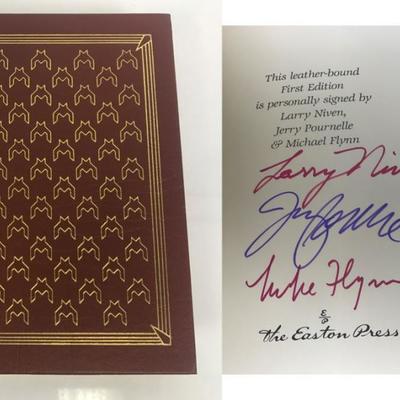 This leather-bound
First Edition
is personally signed by
Larry Niven,
Jerry Pournelle
& Michael Flynn
Larry Niv
Mike Flynn
the Easton Press